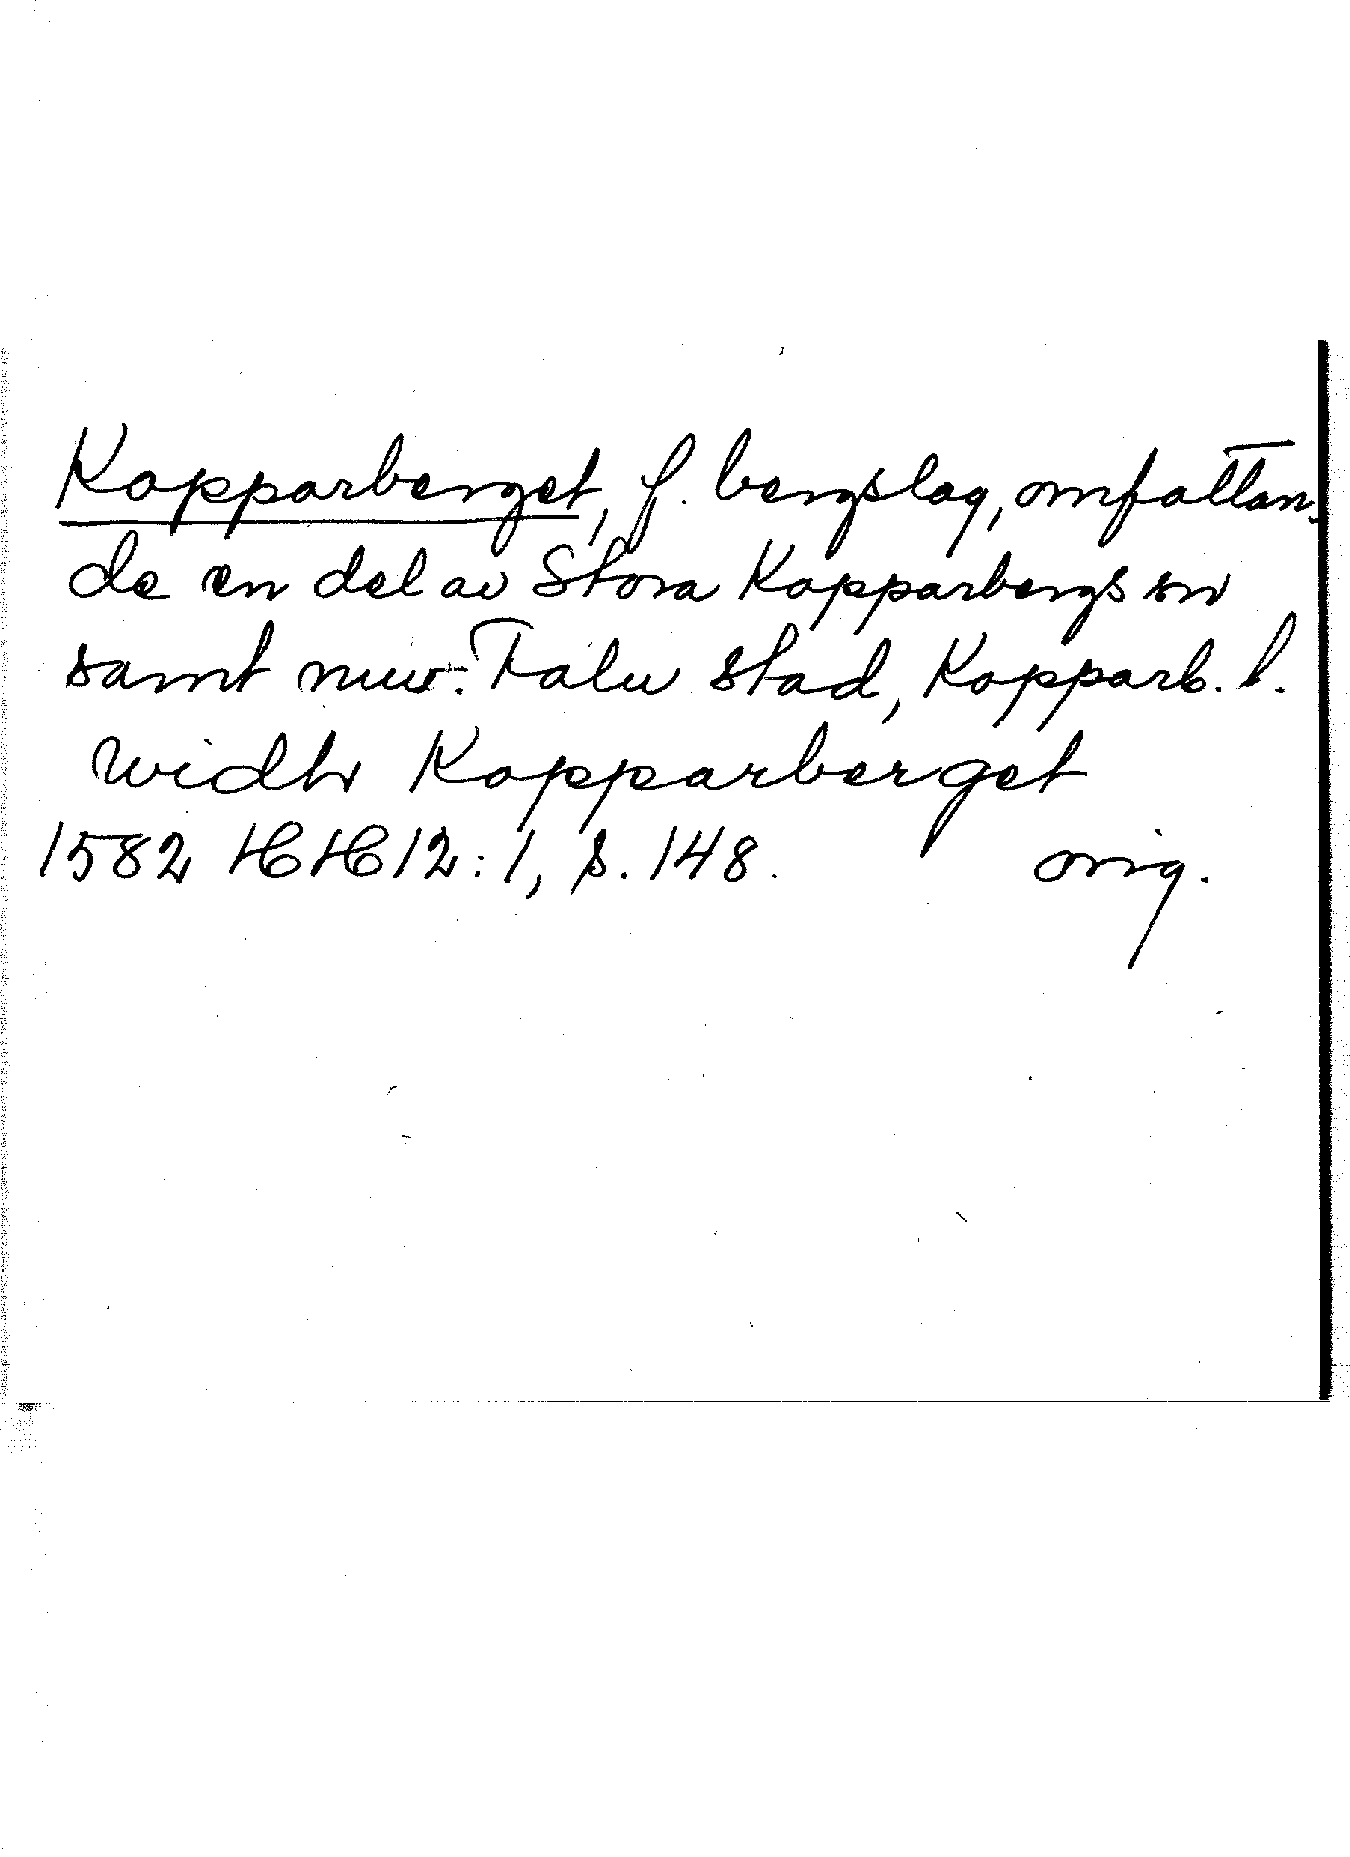 Kopparberget, f. bergslag, omfattan-
de en del av Stora Kopparbergs sn
samt nuv. Falu stad, Kopparb. l.
widh Kopparberget
1582 HH 12:1, s. 148. orig.